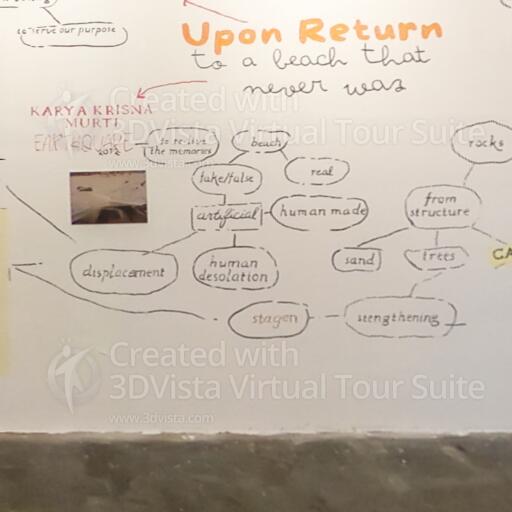 to serve our purpose
Upon Return
to a beach that
never was
KARYA KRISNA
MURTI
EARTHQUAKE
to re-live
the memories
beach
rocks
fake/false
real
from
structure
artificial
human made
sand
trees
displacement
human
desolation
stagen
stengthening
Created with
3DVista Virtual Tour Suite
www.3dvista.com
Created with
3DVista Virtual Tour Suite
www.3dvista.com